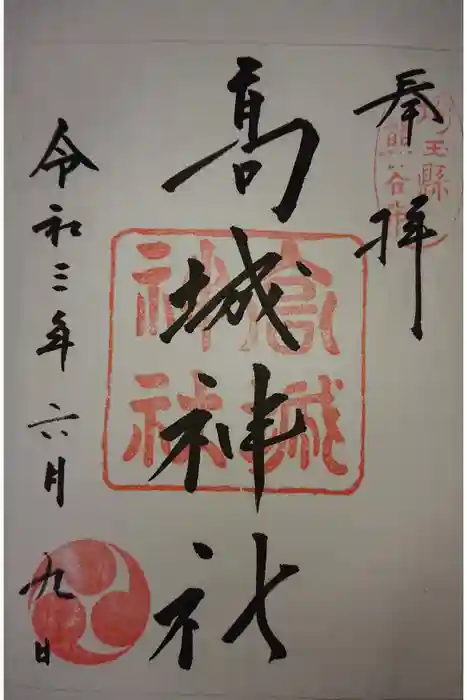 奉拝
埼玉縣
熊谷市
髙城神社
高城
神社
令和三年六月九日